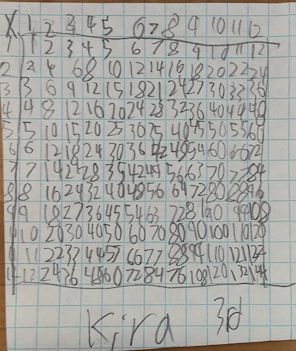 X 1 2 3 4 5 6 7 8 9 10 11 12
1 2 3 4 5 6 7 8 9 10 11 12
2 2 4 6 8 10 12 14 16 18 20 22 24
3 3 6 9 12 15 18 21 24 27 30 33 36
4 4 8 12 16 20 24 28 32 36 40 44 48
5 5 10 15 20 25 30 40 45 50 55 60
6 6 12 18 24 30 36 42 48 54 60 66 72
7 7 14 21 28 35 42 49 56 63 70 77 84
8 8 16 24 32 40 48 56 64 72 80 88 96
9 9 18 27 36 45 54 63 72 81 90 99 108
10 20 30 40 50 60 70 80 90 100 110 120
11 22 33 44 55 66 77 88 99 110 121
12 24 36 48 60 72 84 96 108 120 132 144
Kira 3rd